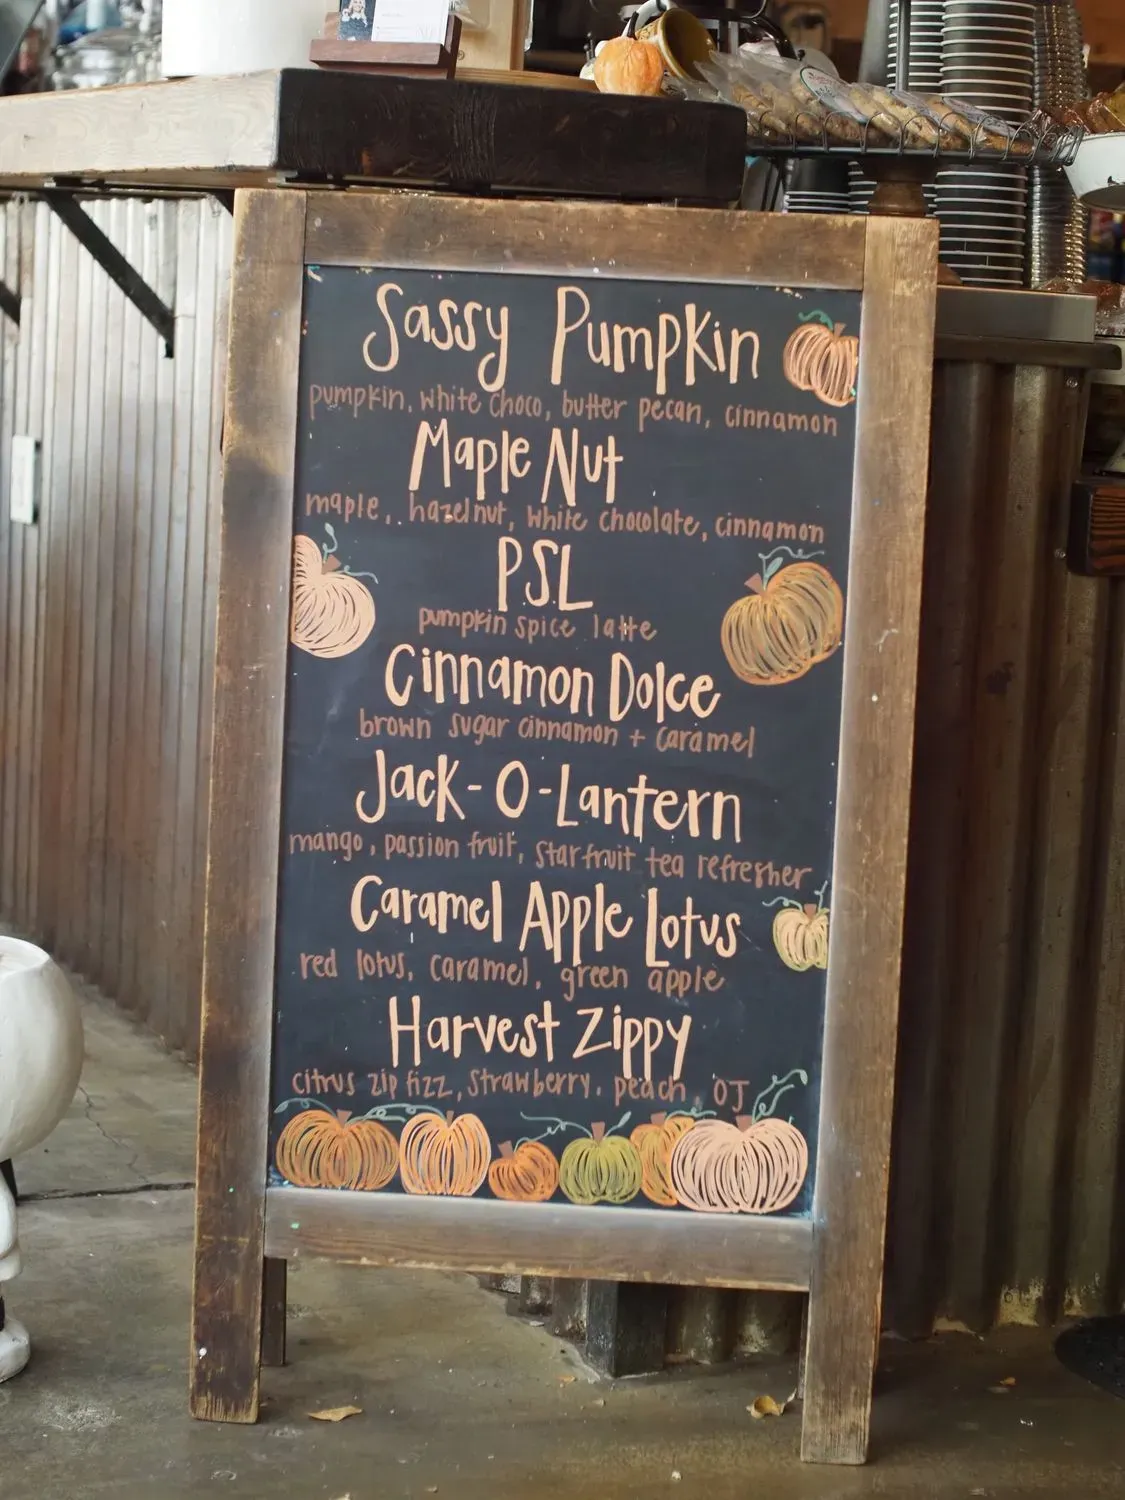 Sassy Pumpkin
pumpkin, white choco, butter pecan, cinnamon
Maple Nut
maple, hazelnut, white chocolate, cinnamon
PSL
pumpkin spice latte
Cinnamon Dolce
brown sugar cinnamon + caramel
Jack-O-Lantern
mango, passion fruit, starfruit tea refresher
Caramel Apple Lotus
red lotus, caramel, green apple
Harvest Zippy
citrus zip fizz, strawberry, peach, OJ